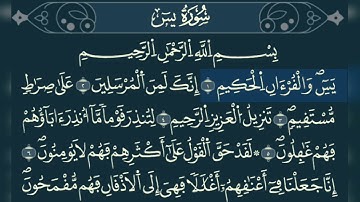 سُورَةُ يسٓ
بِسْمِ اللَّهِ الرَّحْمَٰنِ الرَّحِيمِ
يسٓ وَالْقُرْءَانِ الْحَكِيمِ ١ إِنَّكَ لَمِنَ الْمُرْسَلِينَ ٢ عَلَىٰ صِرَاطٍ
مُّسْتَقِيمٍ ٣ تَنزِيلَ الْعَزِيزِ الرَّحِيمِ ٤ لِتُنذِرَ قَوْمًا مَّا أُنذِرَ ءَابَاؤُهُمْ
فَهُمْ غَٰفِلُونَ ٥ لَقَدْ حَقَّ الْقَوْلُ عَلَىٰ أَكْثَرِهِمْ فَهُمْ لَا يُومِنُونَ ٦
إِنَّا جَعَلْنَا فِي أَعْنَٰقِهِمْ أَغْلَٰلًا فَهِيَ إِلَى الْأَذْقَانِ فَهُم مُّقْمَحُونَ ٧